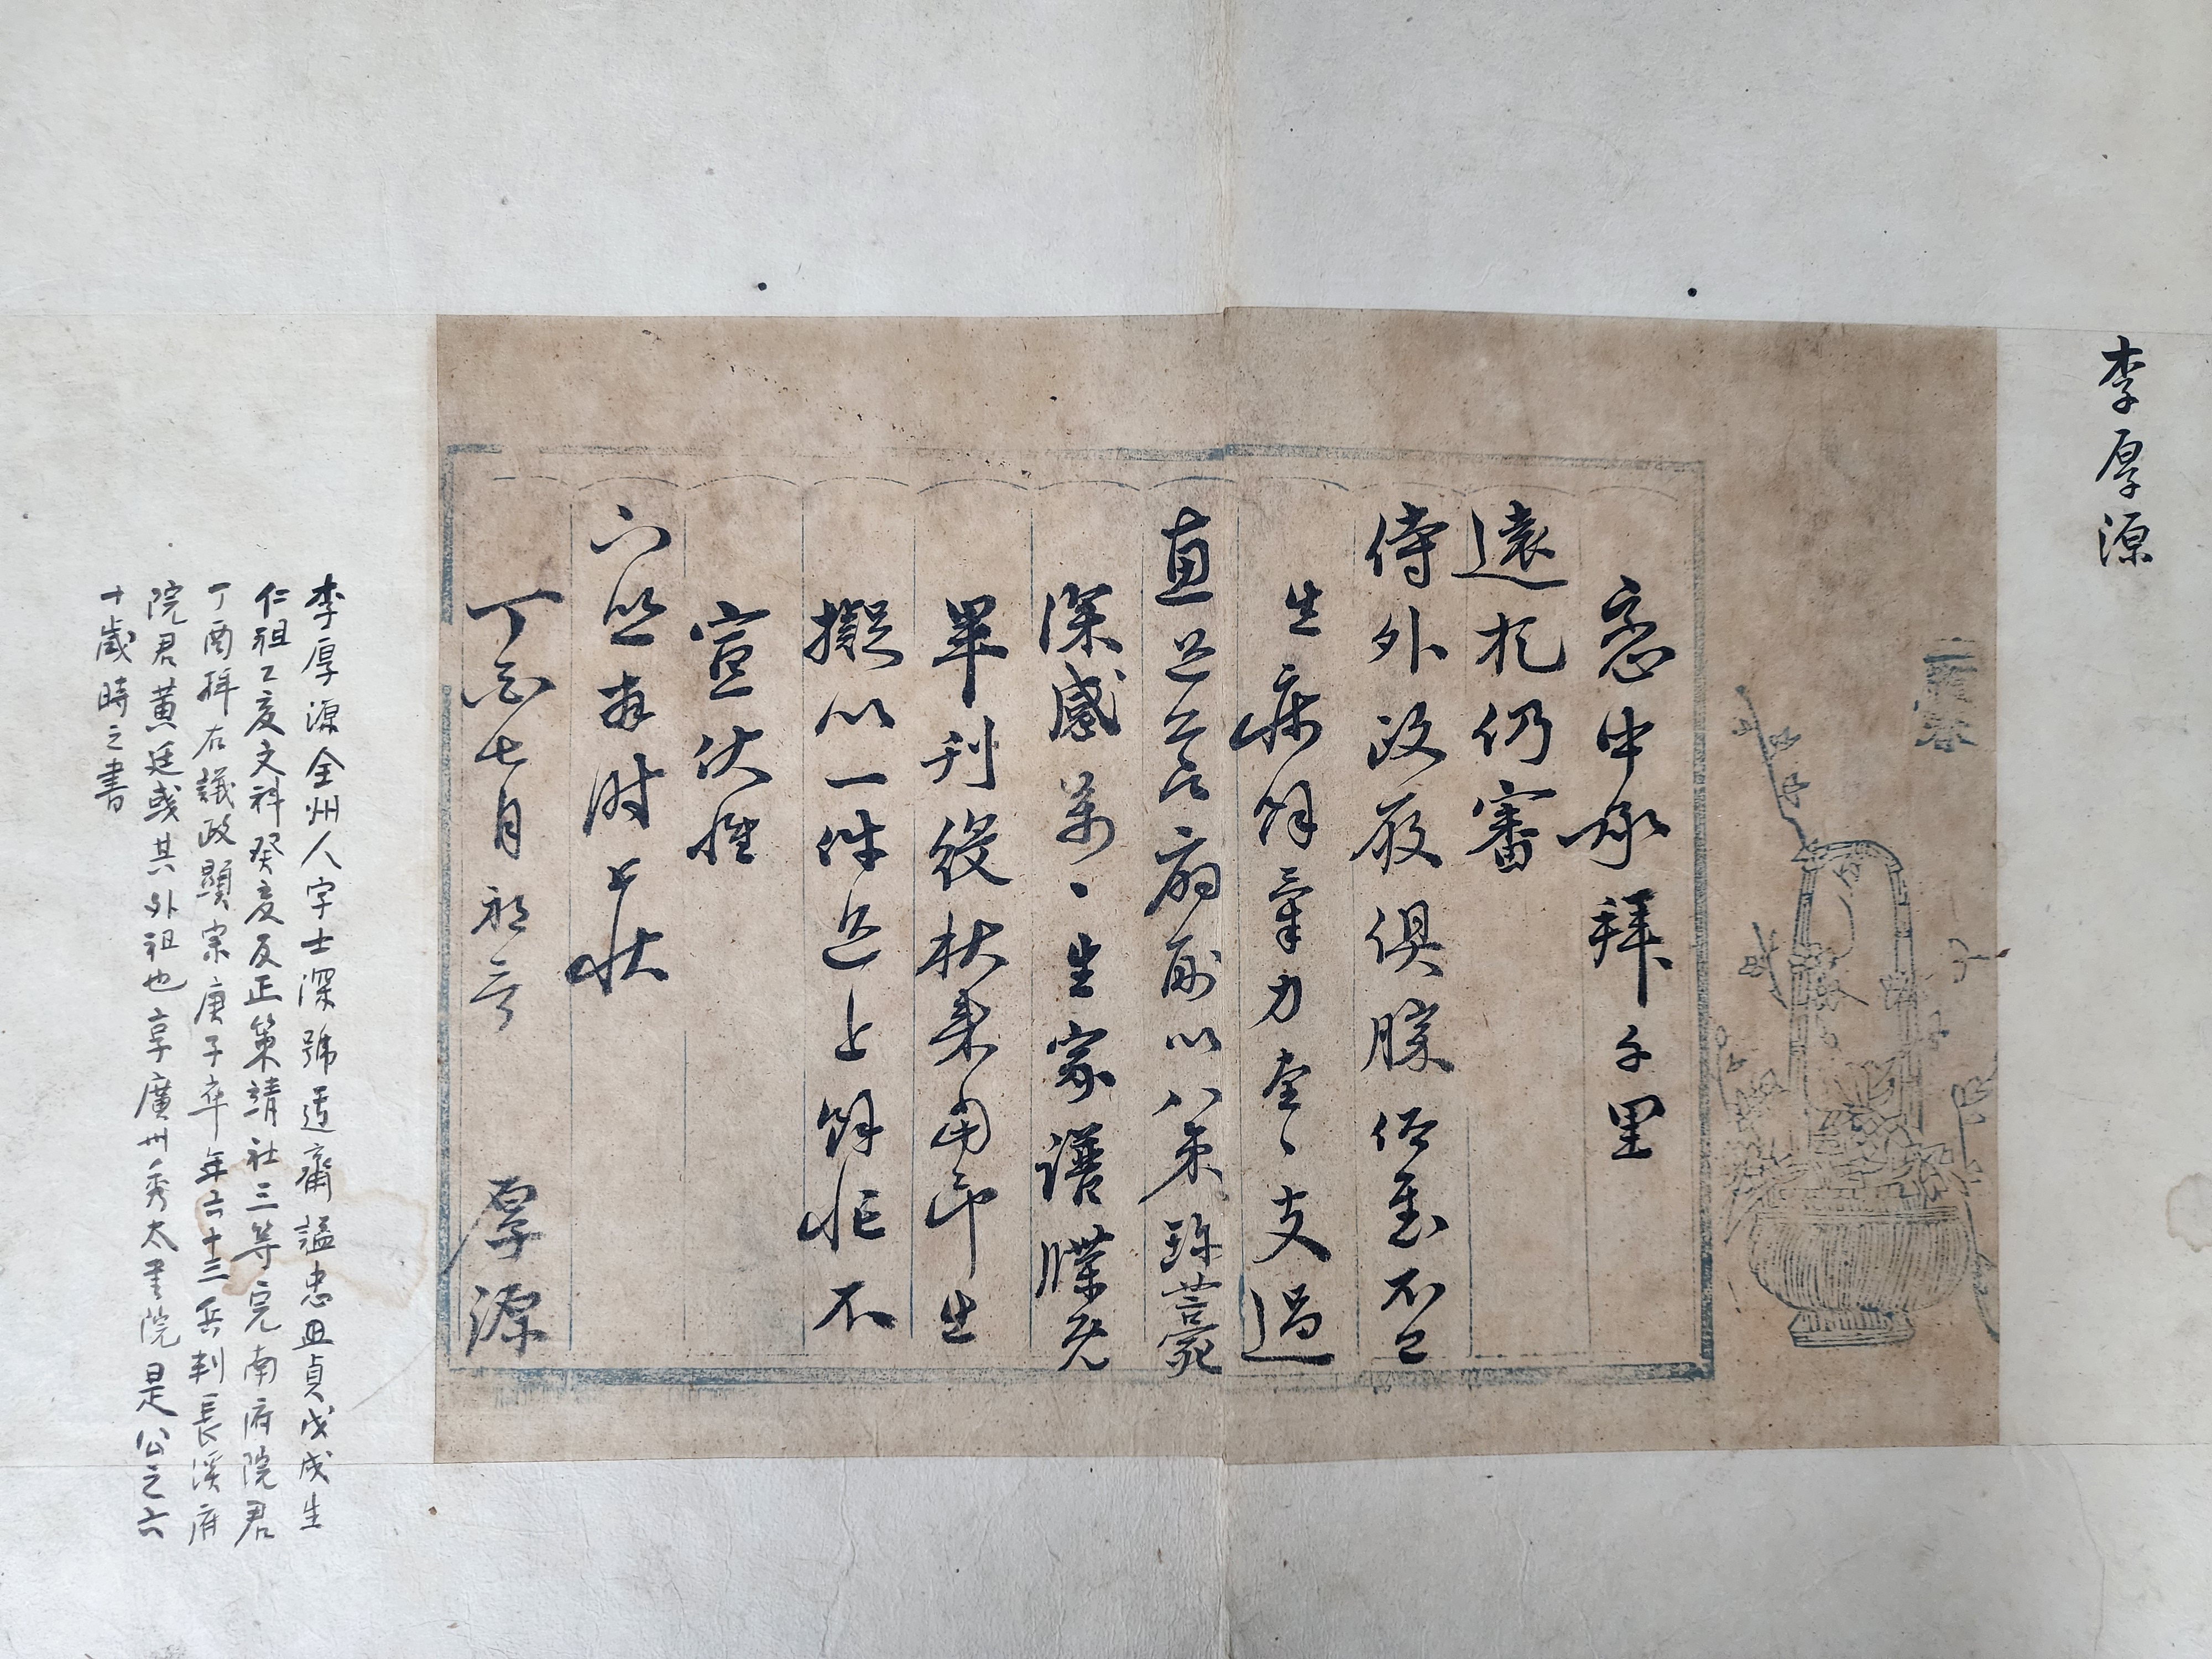 李厚源
恋中承拜千里
遠札仍審
侍外政履俱勝何慰不已
生病餘氣力奄、支過
直是公苦扇劑以八束珍薧
深感萬、生家譜牒元
畢刊役秋來當印生
擬以一件送上餘忙不
宣伏惟
下照拜謝上狀
丁巳七月初六 厚源
李厚源全州人字士深號适齋謚忠且貞戊戌生
仁祖乙亥文科癸亥反正策靖社三等完南府院君
丁酉拜右議政顯宗庚子卒年六十三兵判長溪府
院君黃廷彧其外祖也享廣州秀太書院是公之六
十歲時之書